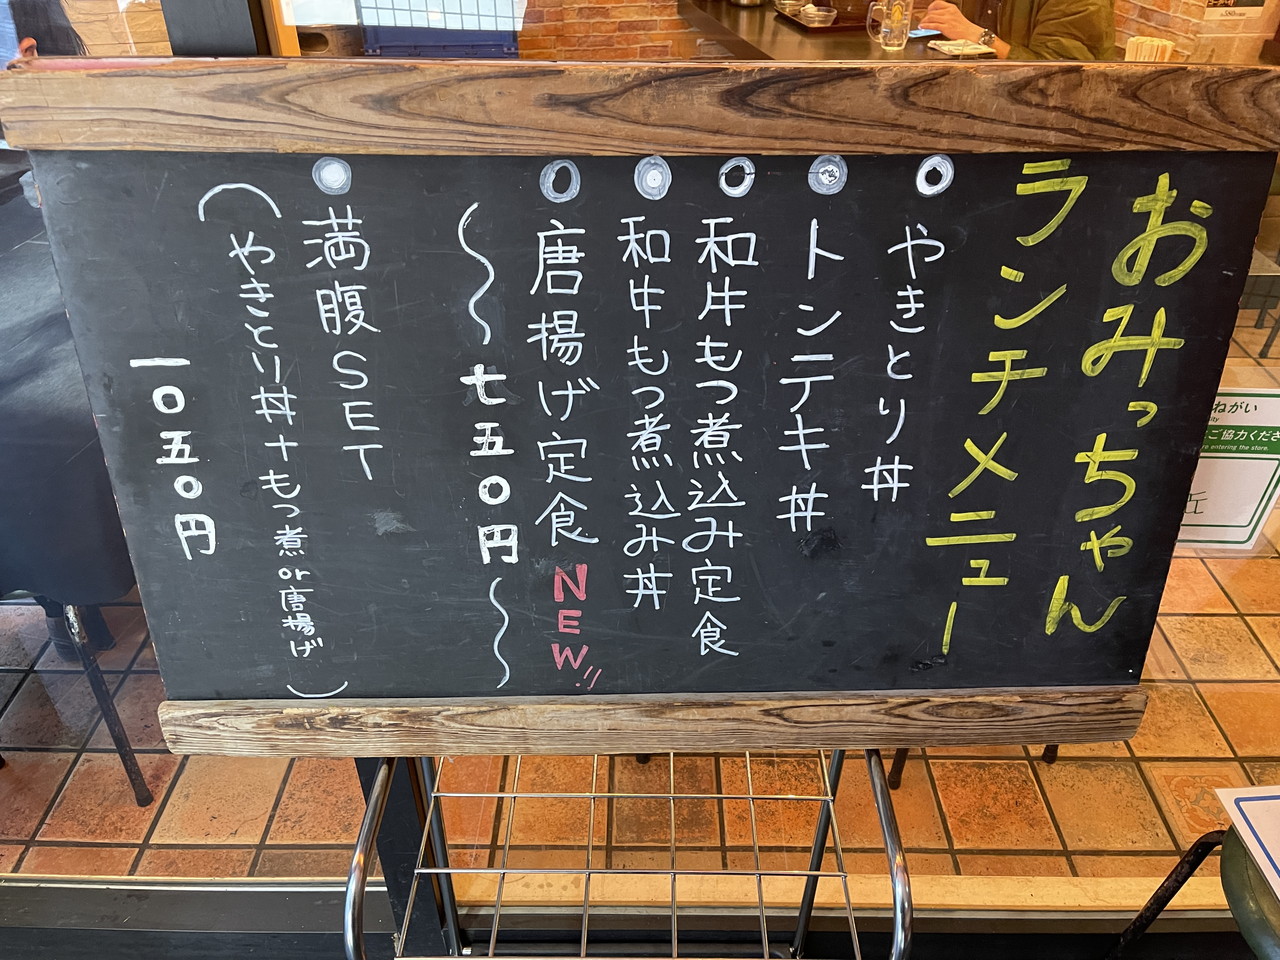 おみっちゃん
ランチメニュー
やきとり丼
トンテキ丼
和牛もつ煮込み定食
和牛もつ煮込み丼
唐揚げ定食 NEW!!
〜七五〇円〜
満腹SET
(やきとり丼+もつ煮or唐揚げ)
一〇五〇円
ねがい
ご協力くださ
re entering the store.